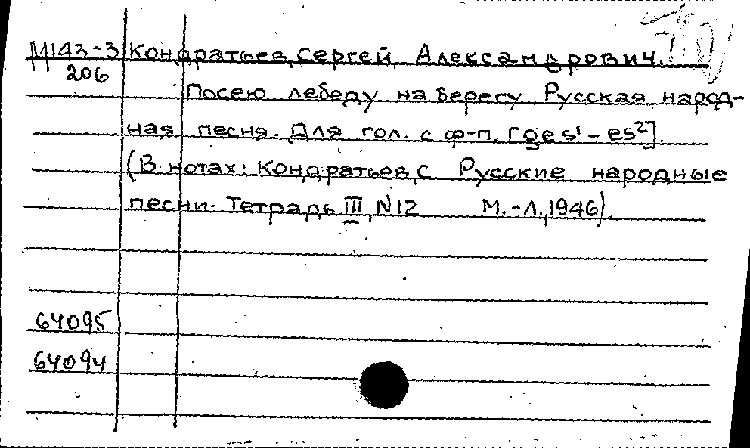 М143-3 Кондратьев, Сергей Александрович.
206
Посею лебеду на берегу Русская народ-
ная песня. Для гол. с ф-п. [ges¹-es²]
(В нотах: Кондратьев, С Русские народные
песни. Тетрадь III, N12 М.-Л., 1946).
64095
64094